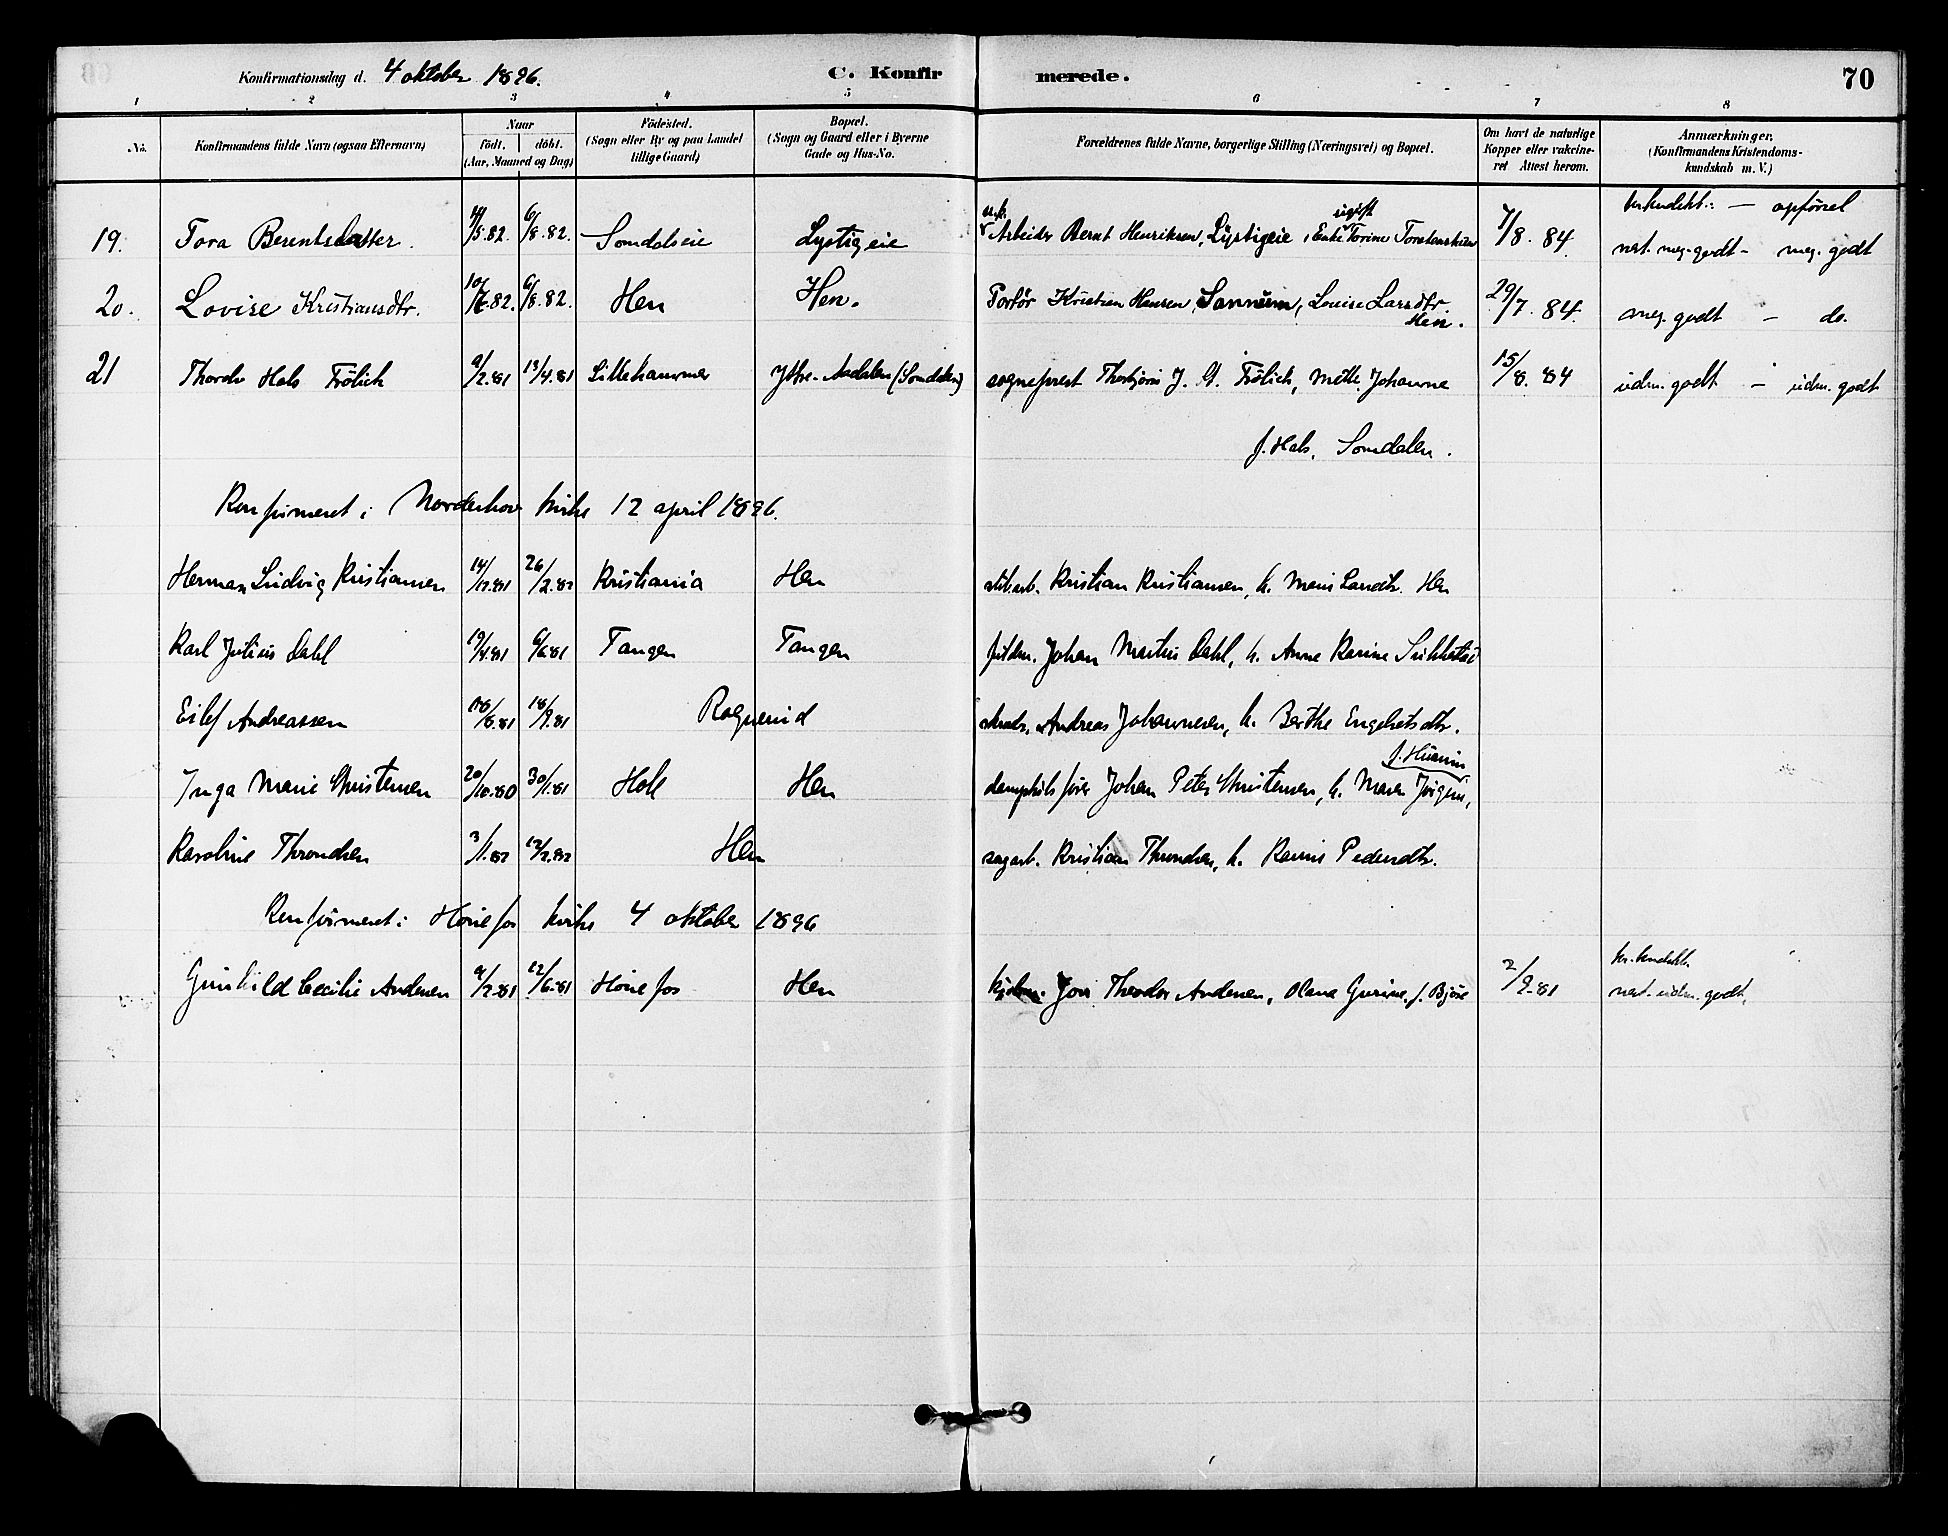 Konfirmationsdag d. 4 oktober 1896. C. Konfirmerede. 70
1 2 3 4 5 6 7 8
No. Konfirmandens fulde Navn (ogsaa Efternavn) Naar född. döbt. (Aar, Maaned og Dag) Födested. (Sogn eller By og paa Landet tillige Gaard) Bopæl. (Sogn og Gaard eller i Byerne Gade og Hus-No. Forældrenes fulde Navne, borgerlige Stilling (Næringsvei) og Bopæl. Om havt de naturlige Kopper eller vakcineret Attest herom. Anmærkninger, (Konfirmandens Kristendomskundskab m. V.)
kr.kundsk.: — opförsel
19. Tora Berntsdatter. /5.82. 6/8.82. Somdalseie Lystigeie Arbeider Bernt Henriksen, Lystigeie, ugift Enke Torine Torstensdatter 7/8. 84. næst. meg. godt - meg. godt
20. Lovise Kristiansdtr. 10/6.82. 6/8.82. Hen Hen. Kristian Hansen, Lovise Larsdtr. Hen. 29/7. 84. meg. godt — do.
21 Thordv Hals Frölich 9/2.81 13/4.81 Lillehammer Ytre-Aadalen (Somdalen) sogneprest Thorbjörn J. G. Frölich, Mette Johanne 15/8. 84 udm. godt — udm. godt
f. Hals, Somdalen.
Konfirmeret i Norderhov kirke 12 april 1896.
Herman Ludvig Kristiansen 14/12.81 26/2.82 Kristiania Hen Kristian Kristiansen, h. Hen
Karl Julius Dahl 19/4.81 6/6.81 Tangen Tangen Johan Martin Dahl, h. Anne Karine
Eilef Andreassen 18/8.81 18/9.81 Rognerud Andreas Johannesen, h. Berthe Engebretsdtr.
Inga Marie Christensen 20/10.80 30/1.81 Hole Hen dampskibsförer Johan Peter Christensen, h. Maren Jörgine,
Karoline Throndsen 3/1.82 12/2.82 Hen sagarb. Kristian Throndsen, h. Karine Pedersdtr.
Konfirmeret i Hönefos kirke 4 oktober 1896
kr.kundskb.
Gunhild Cecilie Andersen 9/2.81 12/6.81 Hönefos Hen Theodor Andersen, Olava Gurine, f. Björe 2/9.81 næst. udm. godt,